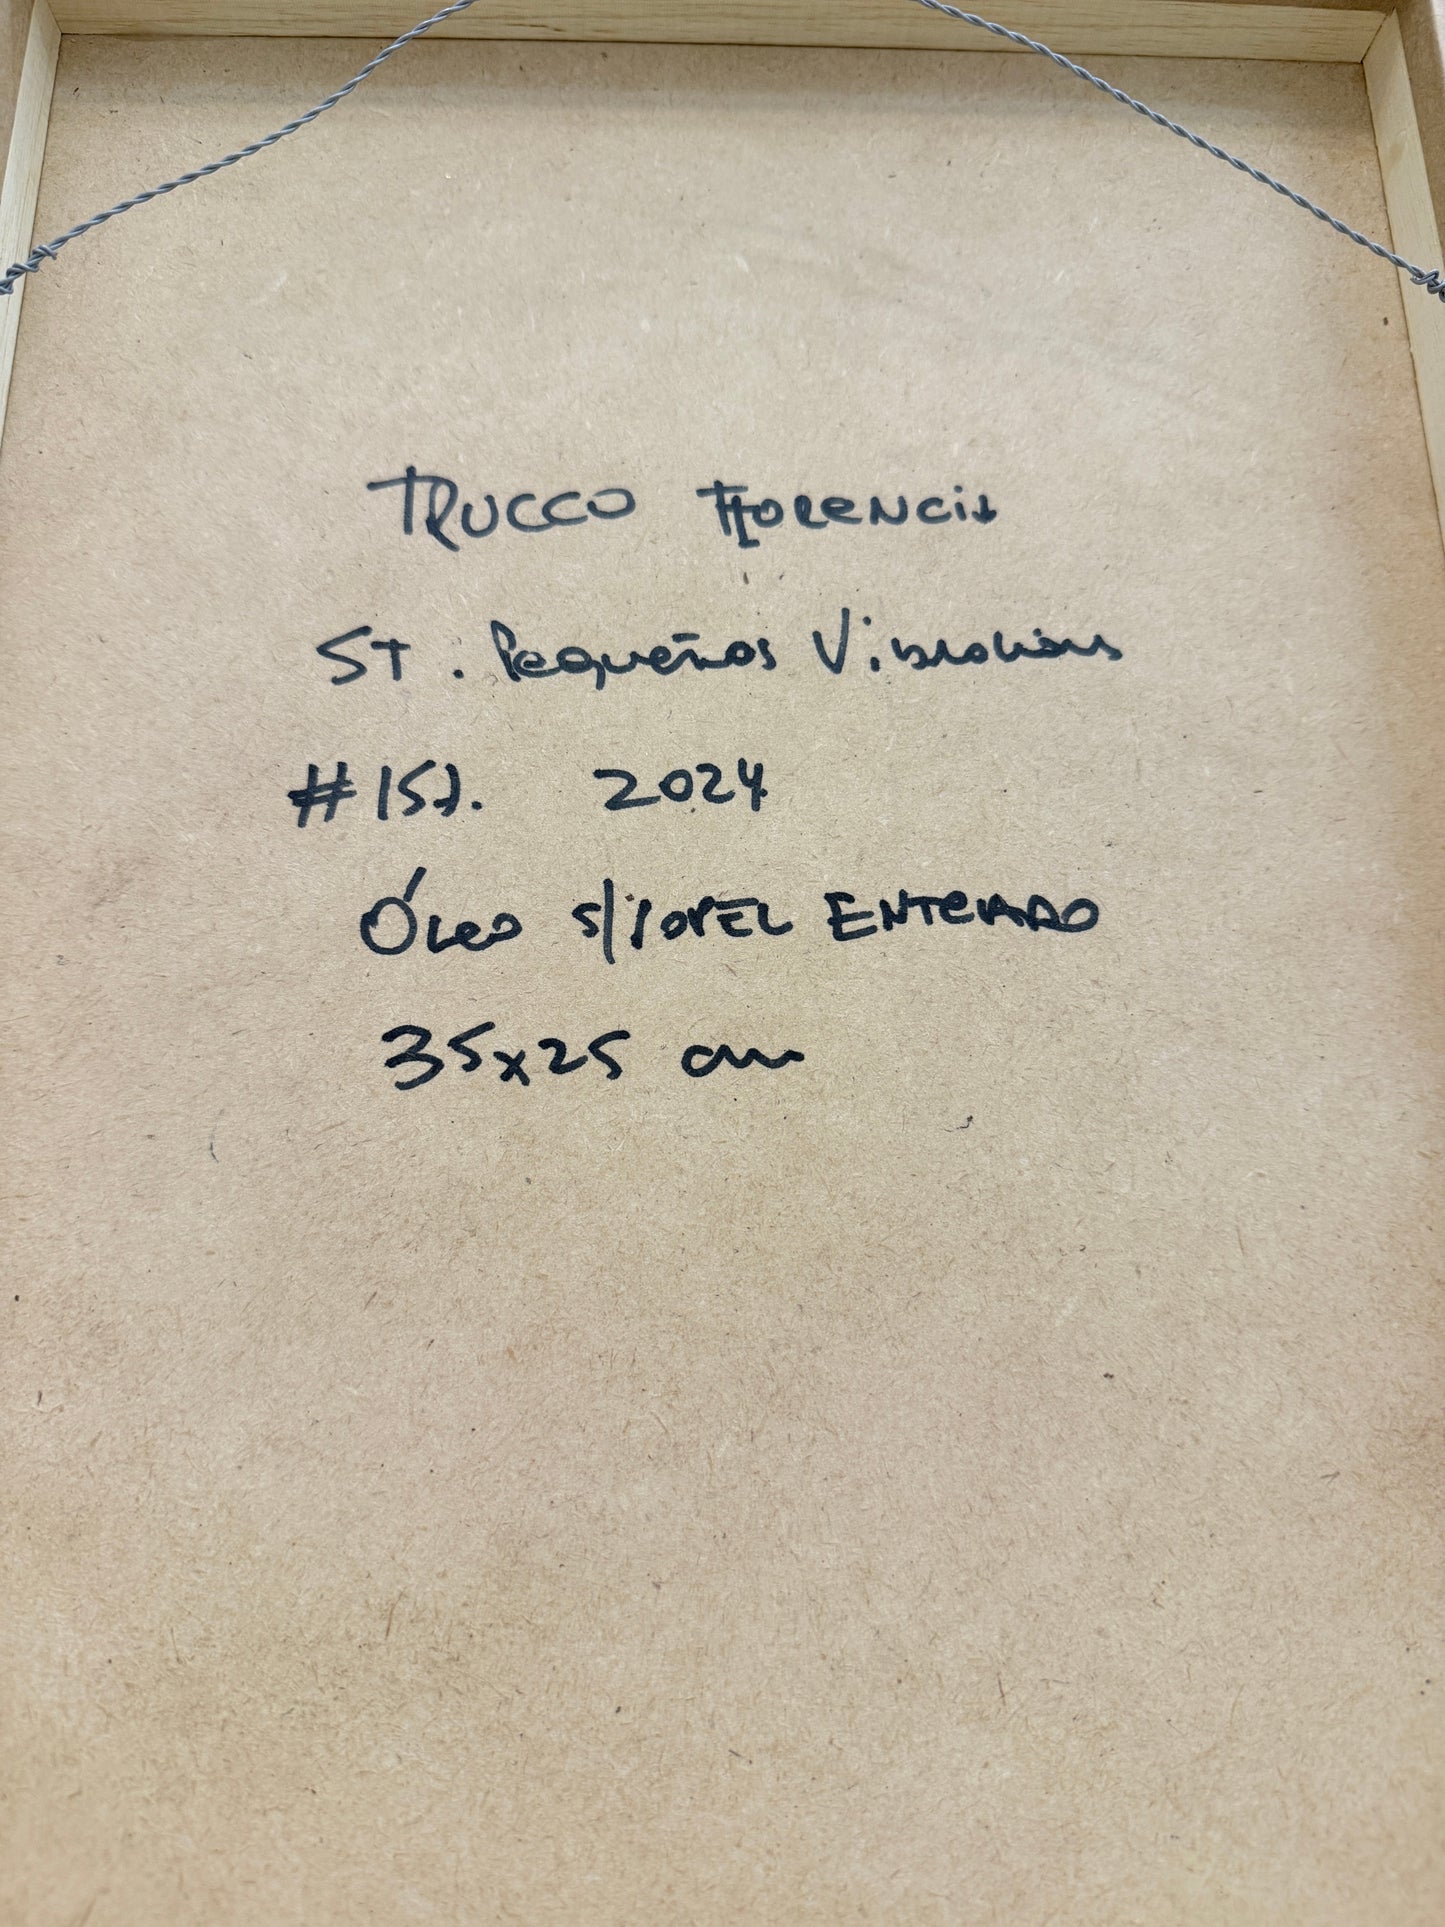 TRUCCO FLORENCIA
ST. Pequeñas Vibraciones
2024
ÓLEO S/PAPEL ENTELADO
35x25 cm